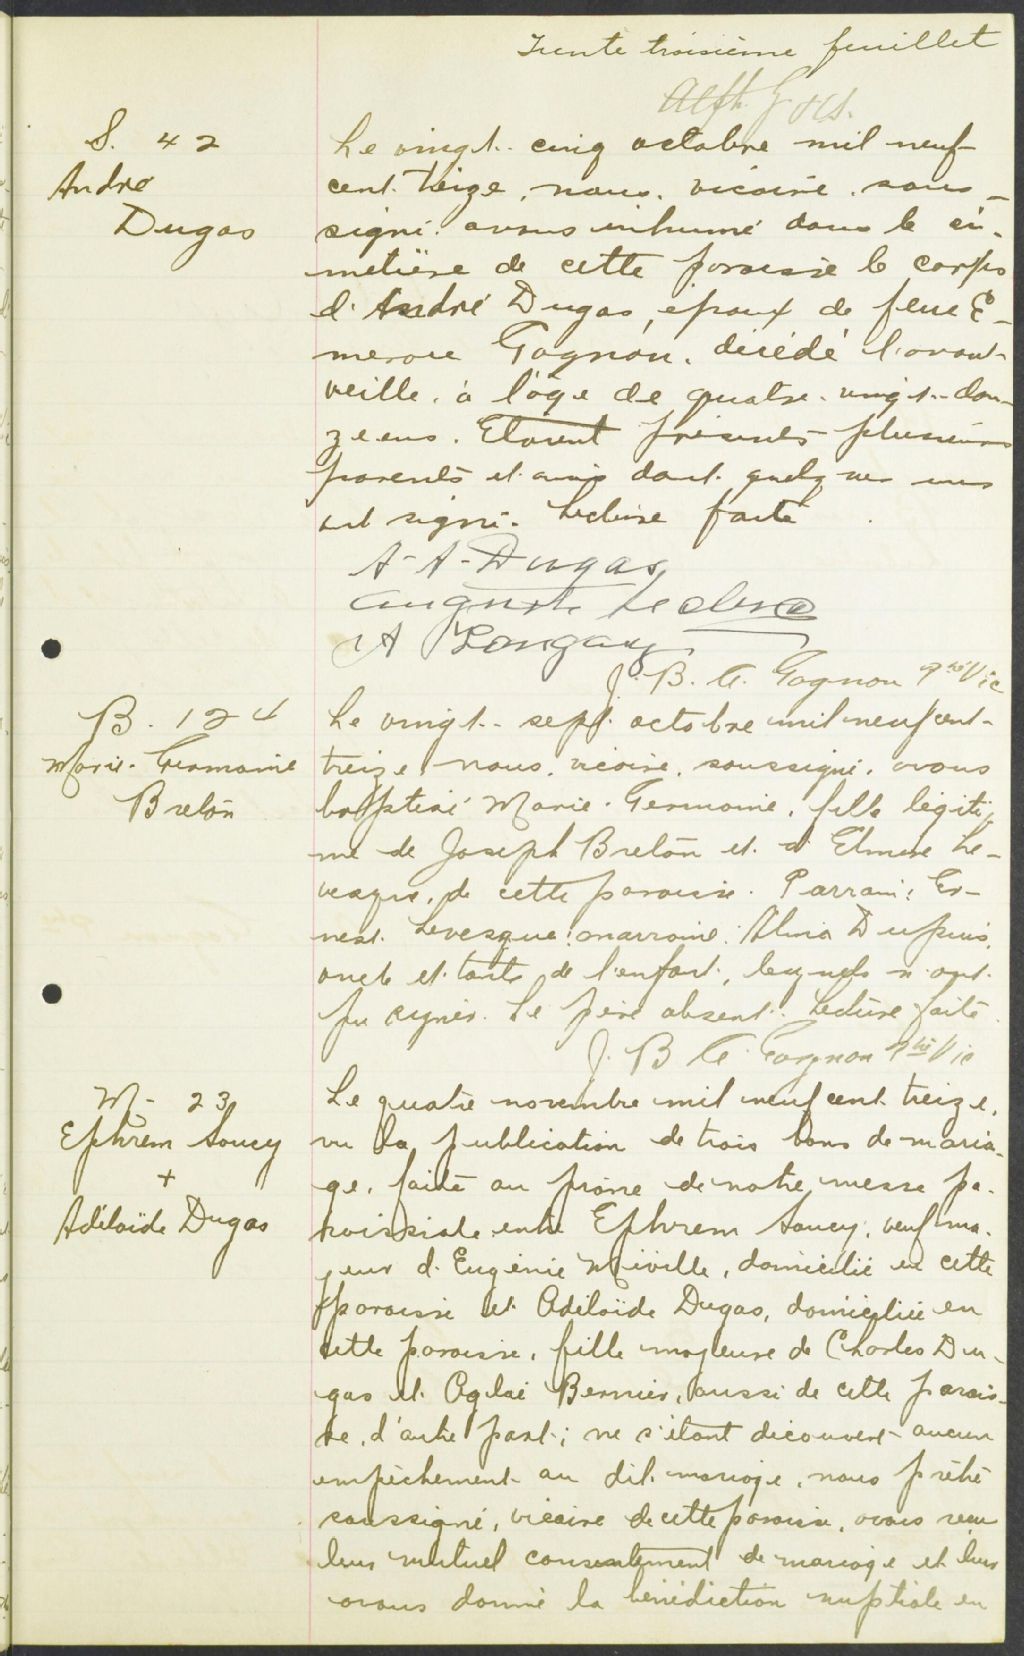 Trente troisième feuillet
Alph.
S. 42
André
Dugas
Le vingt-cinq octobre mil neuf
cent treize, nous, vicaire, sous-
signé, avons inhumé dans le ci-
metière de cette paroisse le corps
d'André Dugas, époux de feue É-
merence Gagnon, décédé l'avant-
veille, à l'âge de quatre-vingt-dou-
ze ans. Étaient présents plusieurs
parents et amis dont quelques uns
ont signé. Lecture faite
A-A-Dugas
Auguste Leclerc
A
J. B. C. Gagnon Ptre Vic
B. 124
Marie-Germaine
Breton
Le vingt-sept octobre mil neuf cent-
treize, nous, vicaire, soussigné, avons
baptisé Marie-Germaine, fille légiti-
me de Joseph Breton et d'Elmere Le-
vesque, de cette paroisse. Parrain: Er-
nest Levesque; marraine: Alma Dupuis,
oncle et tante de l'enfant, lesquels n'ont
pu signer. Le père absent. Lecture faite
J. B. C. Gagnon Ptre Vic
M- 23
Ephrem Soucy
+
Adélaïde Dugas
Le quatre novembre mil neuf cent treize,
vu la publication de trois bans de maria-
ge, faite au prône de notre messe pa-
roissiale entre Ephrem Soucy, veuf ma-
jeur d'Eugénie Miville, domicilié en cette
paroisse et Adélaïde Dugas, domiciliée en
cette paroisse, fille majeure de Charles Du-
gas et Aglaé Bernier, aussi de cette parois-
se, d'autre part; ne s'étant découvert aucun
empêchement au dit mariage, nous prêtre
soussigné, vicaire de cette paroisse, avons reçu
leur mutuel consentement de mariage et leur
avons donné la bénédiction nuptiale en